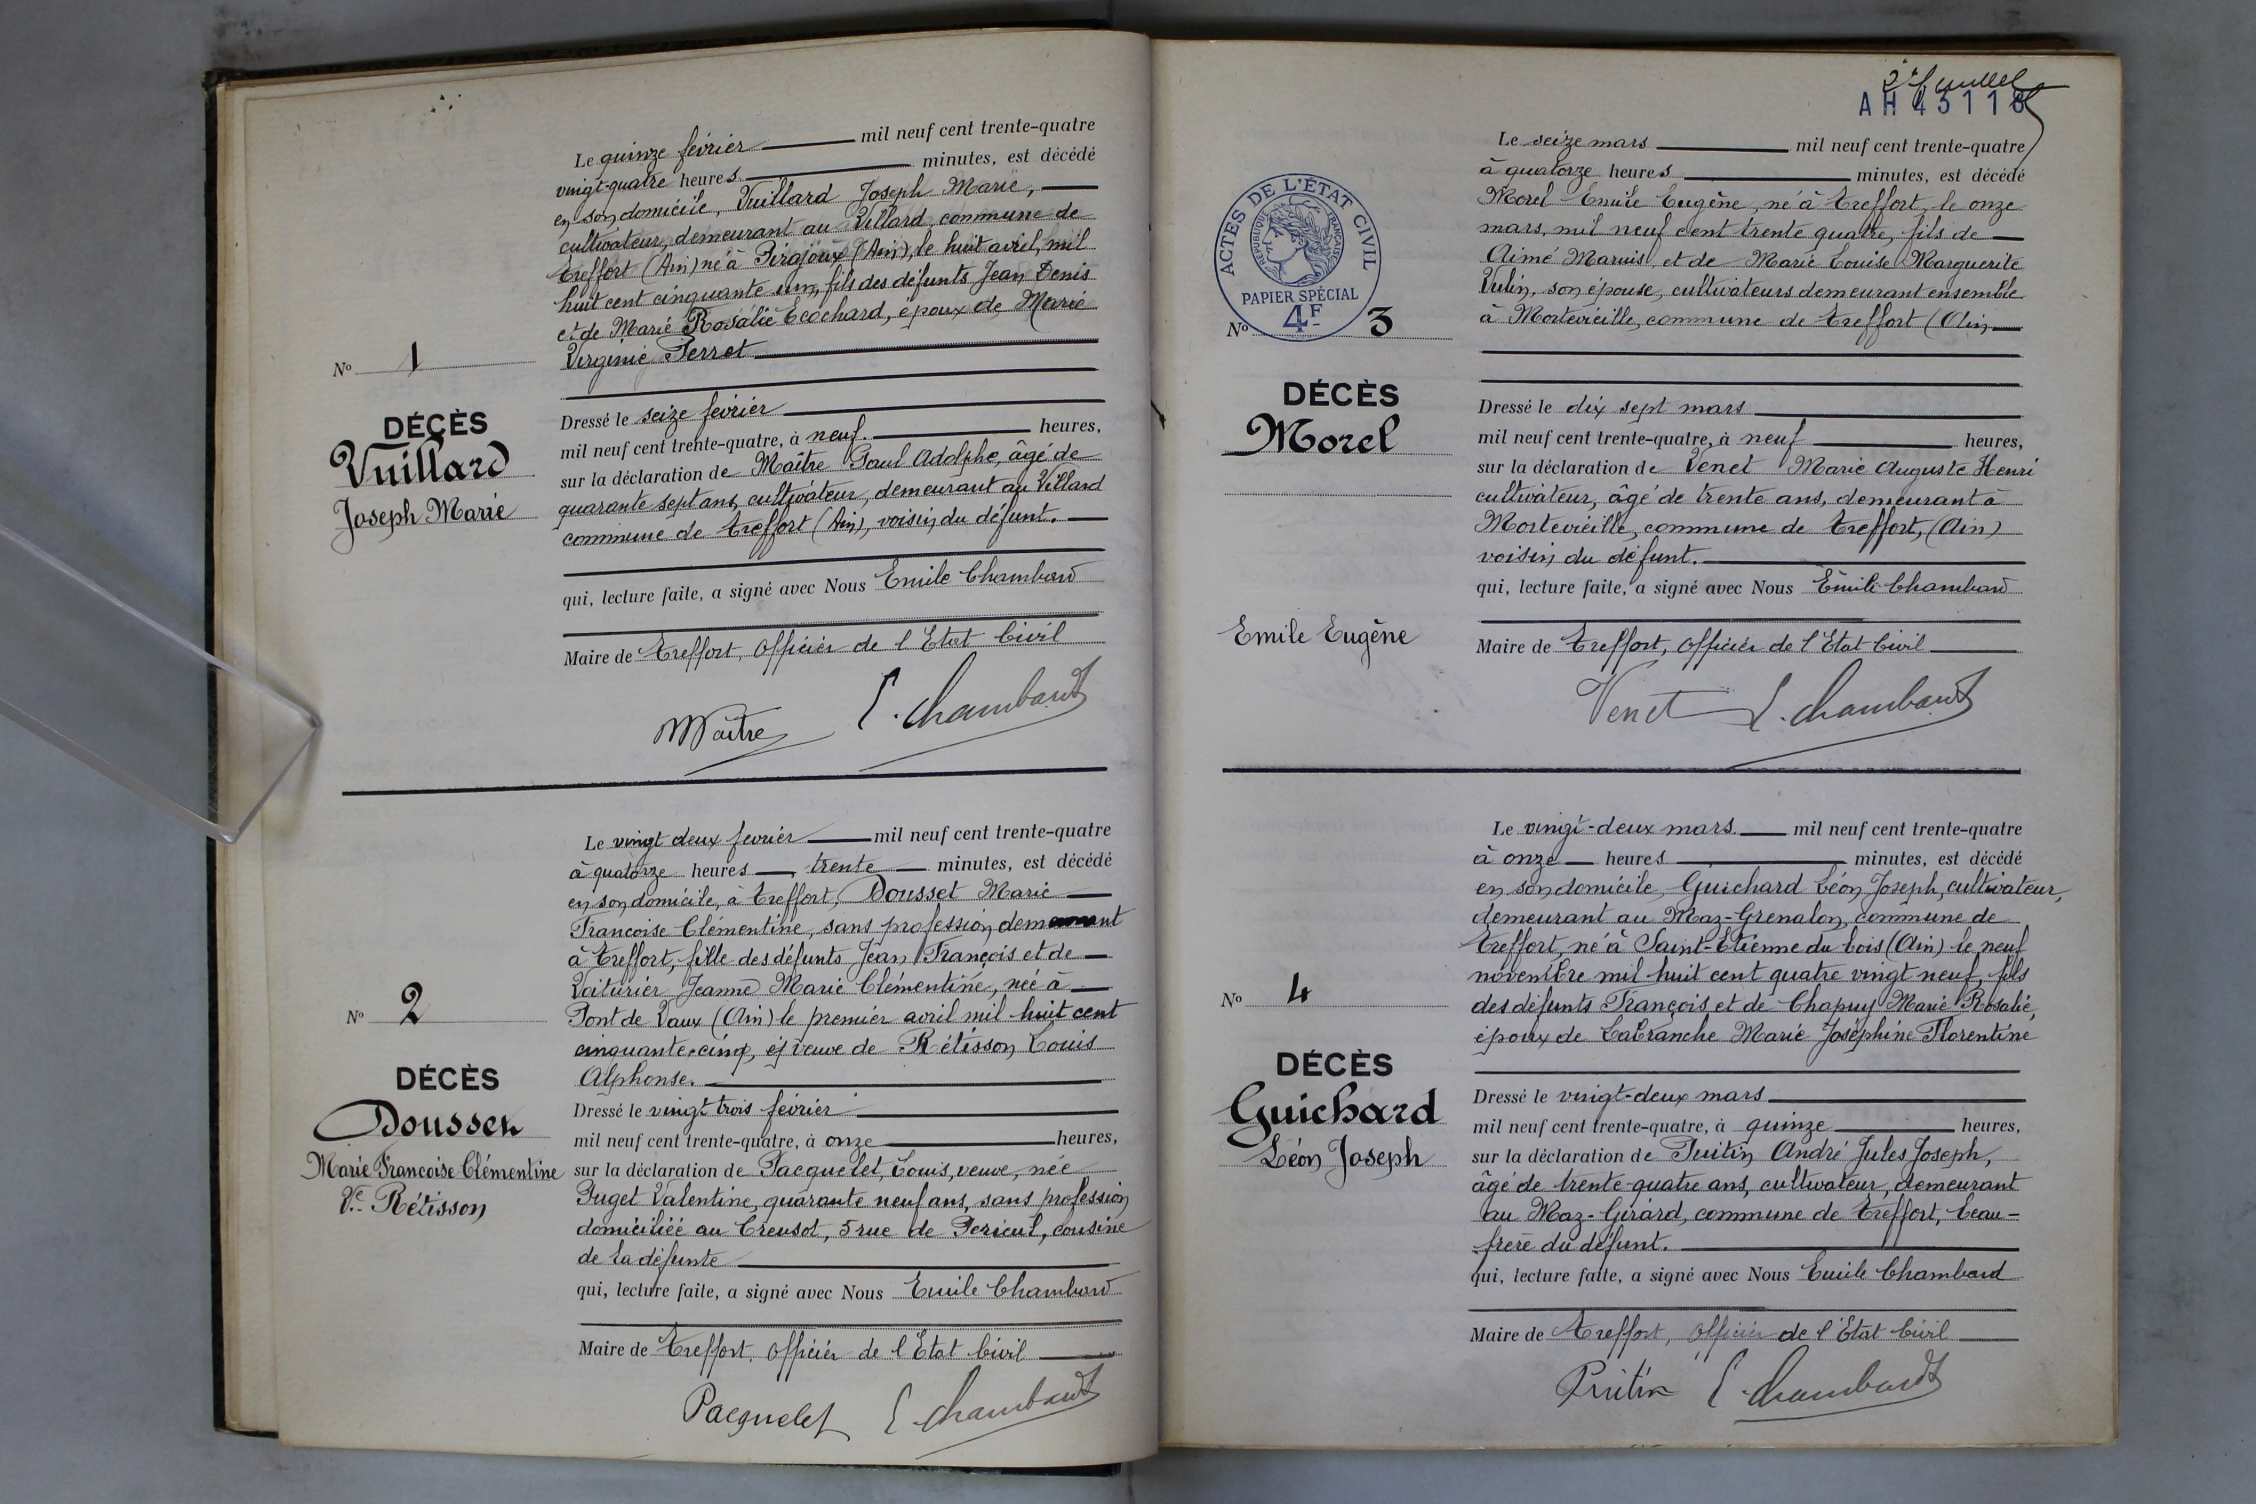 Le quinze février mil neuf cent trente-quatre
vingt-quatre heures minutes, est décédé
en son domicile, Vuillard Joseph Marie,
cultivateur, demeurant au Villard, commune de
Treffort (Ain) né à Pirajoux (Ain), le huit avril, mil
huit cent cinquante un, fils des défunts Jean Denis
et de Marie Rosalie Ecochard, époux de Marie
Virginie Perret
Nº 1
DÉCÈS
Vuillard
Joseph Marie
Dressé le seize février
mil neuf cent trente-quatre, à neuf. heures,
sur la déclaration de Maître Paul Adolphe, âgé de
quarante sept ans, cultivateur, demeurant au Villard
commune de Treffort (Ain), voisin du défunt.
qui, lecture faite, a signé avec Nous Emile Chambard
Maire de Treffort, Officier de l'Etat Civil
Maître E. Chambard
Le vingt deux fevrier mil neuf cent trente-quatre
à quatorze heures, trente minutes, est décédé
en son domicile, à Treffort, Dousset Marie
Francoise Clémentine, sans profession demeurant
à Treffort, fille des défunts Jean François et de
Voiturier Jeanne Marie Clémentine, née à
Pont de Vaux (Ain) le premier avril mil huit cent
cinquante-cinq, et veuve de Rétisson Louis
Alphonse.
Nº 2
DÉCÈS
Dousset
Marie Francoise Clémentine
Vve Rétisson
Dressé le vingt trois février
mil neuf cent trente-quatre, à onze heures,
sur la déclaration de Pacquelet, Louis, veuve, née
Puget Valentine, quarante neuf ans, sans profession
domiciliée au Creusot, 5 rue de, cousine
de la défunte
qui, lecture faite, a signé avec Nous Emile Chambard
Maire de Treffort, Officier de l'Etat Civil
Pacquelet E. Chambard
2e feuillet
AH 43118
Le seize mars mil neuf cent trente-quatre
à quatorze heures minutes, est décédé
Morel Emile Eugène, né à Treffort, le onze
mars, mil neuf cent trente quatre, fils de
Aimé Marius, et de Marie Louise Marguerite
Vulin, son épouse, cultivateurs demeurant ensemble
à Mortevieille, commune de Treffort (Ain,
ACTES DE L'ÉTAT CIVIL
RÉPUBLIQUE FRANÇAISE
PAPIER SPÉCIAL
4F
Nº 3
DÉCÈS
Morel
Emile Eugène
Dressé le dix sept mars
mil neuf cent trente-quatre, à neuf heures,
sur la déclaration de Venet Marie Auguste Henri
cultivateur, âgé de trente ans, demeurant à
Mortevieille, commune de Treffort, (Ain)
voisin du défunt.
qui, lecture faite, a signé avec Nous Emile Chambard
Maire de Treffort, Officier de l'Etat Civil
Venet E. Chambard
Le vingt-deux mars. mil neuf cent trente-quatre
à onze heures minutes, est décédé
en son domicile, Guichard Léon Joseph, cultivateur,
demeurant au Maz-Grenalon, commune de
Treffort, né à Saint-Etienne du bois (Ain) le neuf
novembre mil huit cent quatre vingt neuf, fils
des défunts François et de Chapuy Marie Rosalie,
époux de Labranche Marie Joséphine Florentine
Nº 4
DÉCÈS
Guichard
Léon Joseph
Dressé le vingt-deux mars
mil neuf cent trente-quatre, à quinze heures,
sur la déclaration de Puitin André Jules Joseph,
âgé de trente-quatre ans, cultivateur, demeurant
au Maz-Girard, commune de Treffort, beau-
frère du défunt.
qui, lecture faite, a signé avec Nous Emile Chambard
Maire de Treffort, Officier de l'Etat Civil
Puitin E. Chambard